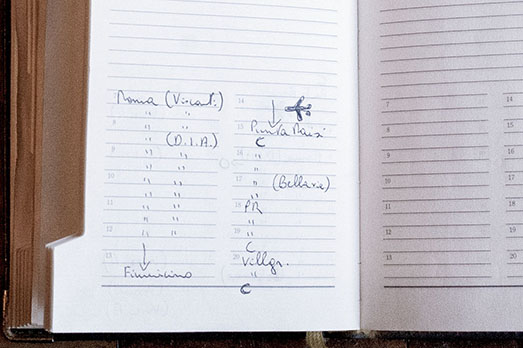 Roma (Viscont.)
" "
8
" (D.I.A.)
9 " "
" "
10 " "
" "
11 " "
" "
12 " "
13
Fiumicino
14
15 Punta Raisi
C
16 "
"
17 " (Bellavie)
"
18 PR
19 "
C
20 Villgr.
"
C
7
8
9
10
11
12
13
14
15
16
17
18
19
20